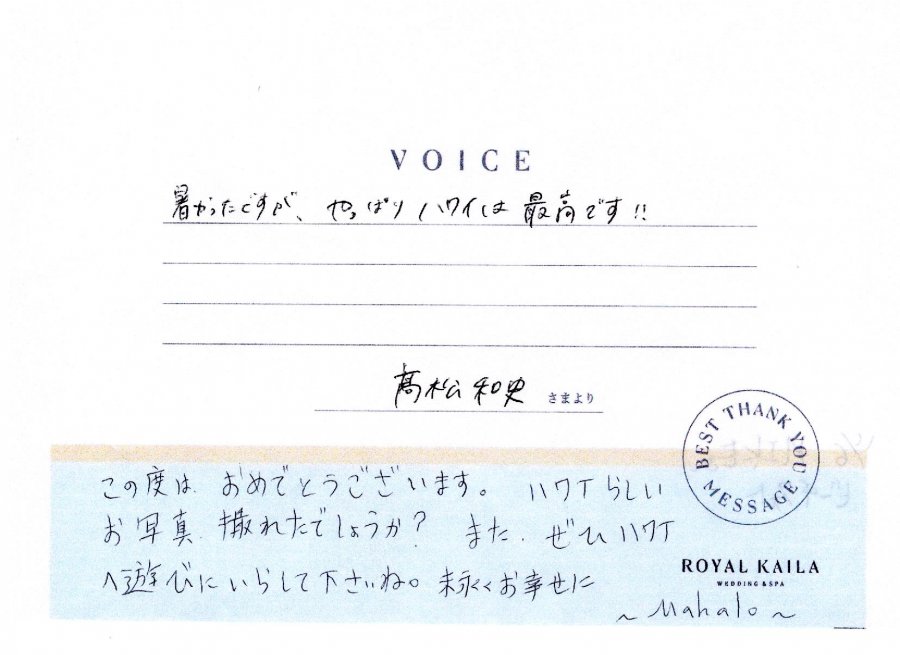 VOICE
暑かったですが、やっぱりハワイは最高です!!
髙松和史 さまより
BEST THANK YOU MESSAGE
この度は おめでとうございます。 ハワイらしい
お写真 撮れたでしょうか? また、ぜひハワイ
へ遊びにいらして下さいね。末永くお幸せに
ROYAL KAILA
WEDDING & SPA
~Mahalo~